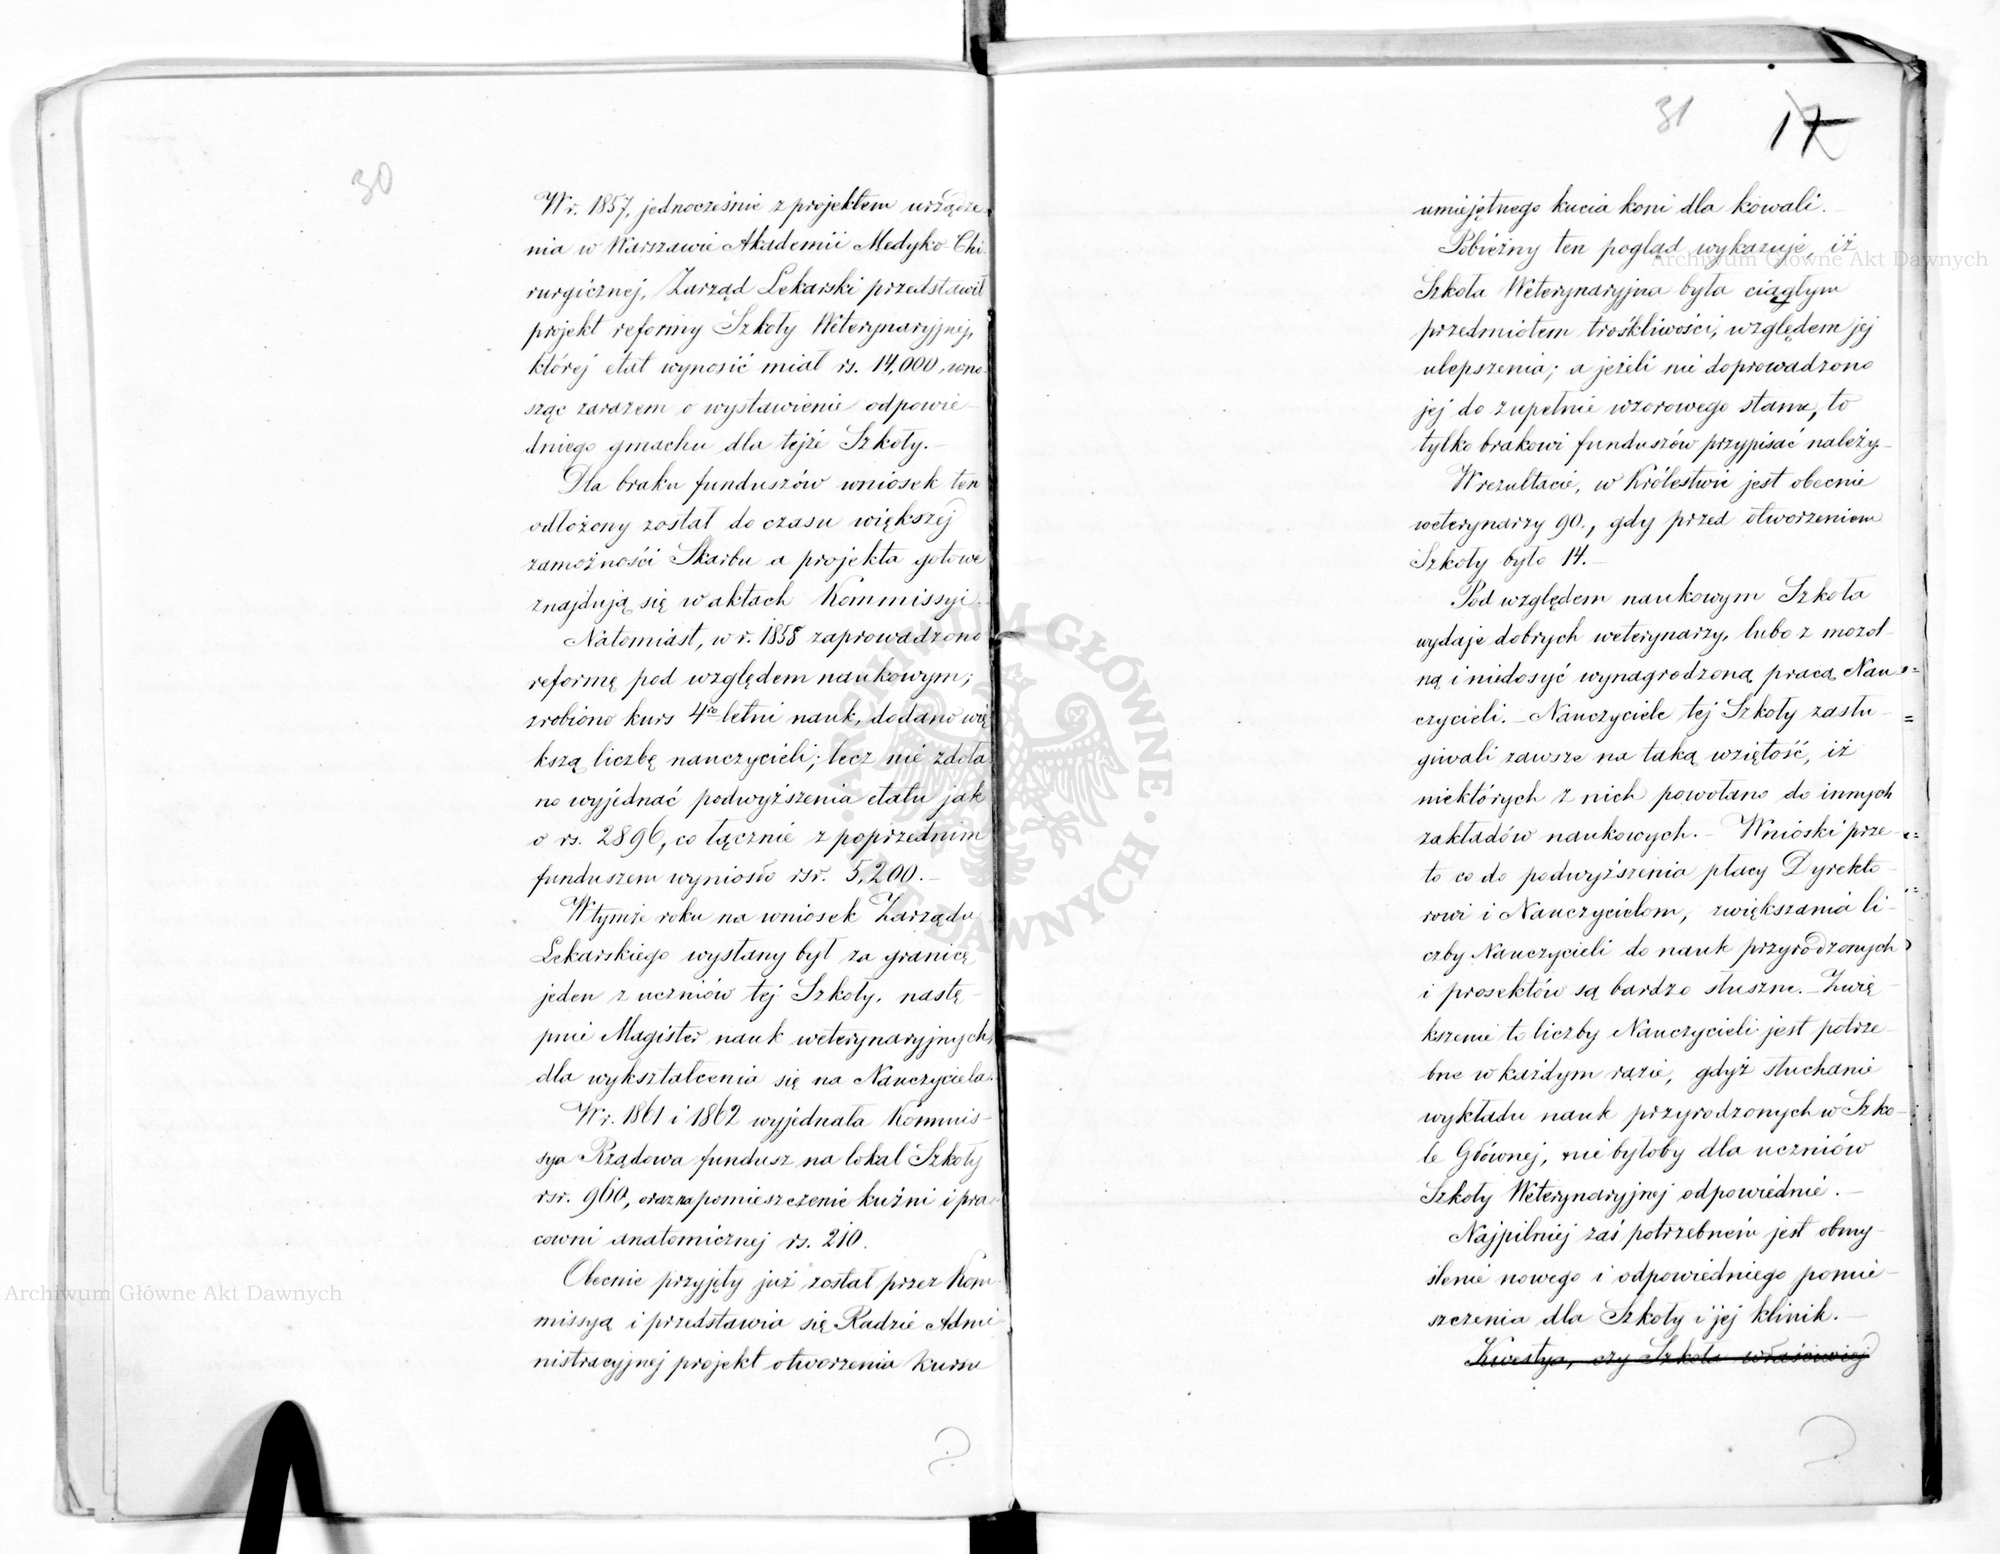 30
W r. 1857, jednocześnie z projektem urządze-
nia w Warszawie Akademii Medyko-Chi-
rurgicznej, Zarząd Lekarski przedstawił
projekt reformy Szkoły Weterynaryjnej,
której etat wynosić miał rs. 14,000, wno-
sząc zarazem o wystawienie odpowie-
dniego gmachu dla tejże Szkoły.-
Dla braku funduszów wniosek ten
odłożony został do czasu większej
zamożności Skarbu a projekta gotowe
znajdują się w aktach Kommissyi.
Natomiast, w r. 1858 zaprowadzono
reformę pod względem naukowym;
zrobiono kurs 4ro letni nauk, dodano wię-
kszą liczbę nauczycieli; lecz nie zdoła-
no wyjednać podwyższenia etatu jak
o rs. 2896, co łącznie z poprzednim
funduszem wyniosło rsr. 5,200.-
W tymże roku na wniosek Zarządu
Lekarskiego wysłany był za granicę
jeden z uczniów tej Szkoły, nastę-
pnie Magister nauk weterynaryjnych,
dla wykształcenia się na Nauczyciela.
W r. 1861 i 1862 wyjednała Kommis-
sya Rządowa fundusz na lokal Szkoły
rsr. 960, oraz na pomieszczenie kuźni i pra-
cowni anatomicznej rs. 210.
Obecnie przyjęty już został przez Kom-
missyą i przedstawia się Radzie Admi-
nistracyjnej projekt otworzenia kursu
31
17
umiejętnego kucia koni dla kowali.-
Pobieżny ten pogląd wykazuje, iż
Szkoła Weterynaryjna była ciągłym
przedmiotem troskliwości, względem jej
ulepszenia; a jeżeli nie doprowadzono
jej do zupełnie wzorowego stanu, to
tylko brakowi funduszów przypisać należy.-
W rezultacie, w Królestwie jest obecnie
weterynarzy 90., gdy przed otworzeniem
Szkoły było 14.-
Pod względem naukowym Szkoła
wydaje dobrych weterynarzy, lubo z mozol-
ną i niedosyć wynagrodzoną pracą Nau-
czycieli.- Nauczyciele tej Szkoły zasłu-
giwali zawsze na taką wziętość, iż
niektórych z nich powołano do innych
zakładów naukowych.- Wnioski prze-
to co do podwyższenia płacy Dyrekto-
rowi i Nauczycielom, zwiększania li-
czby Nauczycieli do nauk przyrodzonych
i prosektów są bardzo słuszne.- Zwię-
kszenie to liczby Nauczycieli jest potrze-
bne w każdym razie, gdyż słuchanie
wykładu nauk przyrodzonych w Szko-
le Głównej, nie byłoby dla uczniów
Szkoły Weterynaryjnej odpowiednie.-
Najpilniej zaś potrzebnem jest obmy-
ślenie nowego i odpowiedniego pomie-
szczenia dla Szkoły i jej klinik.-
Kwestya, czy Szkoła właściwiej
Archiwum Główne Akt Dawnych
Archiwum Główne Akt Dawnych
ARCHIWUM GŁÓWNE AKT DAWNYCH